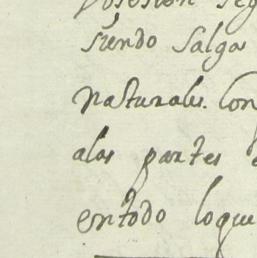 Posesion seg
siendo salga
naturales. Con
alas partes
entodo loque